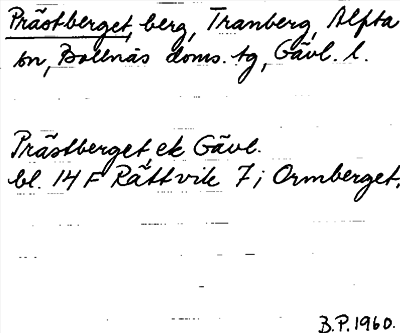 Prästberget, berg, Tranberg, Alfta
sn, Bollnäs doms. tg, Gävl. l.
Prästberget, ek Gävl.
bl. 14 F Rättvik 7; Ormberget.
B.P. 1960.